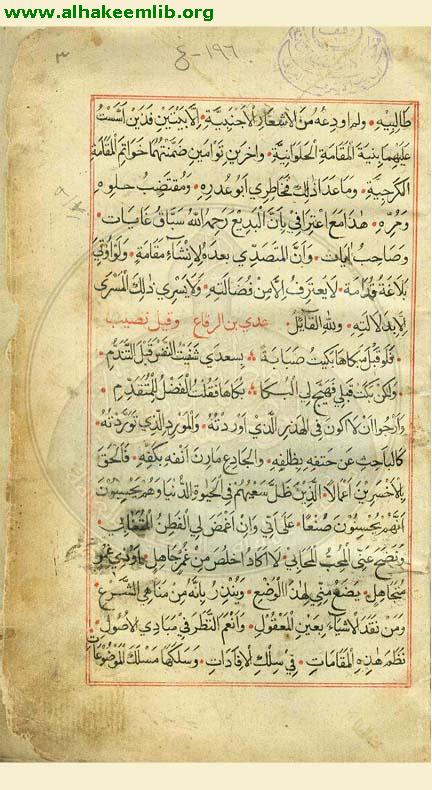 www.alhakeemlib.org
٣
٤-١٩٦
وقف
طالبيه ولم اودعه من الاشعار الاجنبية الا بيتين فذين اسست
عليهما بنية المقامة الحلوانية واخرين توامين ضمنتهما خواتم المقامة
الكرجية وما عدا ذلك فخاطري ابو عذره ومقتضب حلوه
ومره هذا مع اعترافي بان البديع رحمه الله سباق غايات
وصاحب ايات وان المتصدي بعده لانشاء مقامة ولو اوتي
بلاغة قدامة لا يغترف الا من فضالته ولا يسري ذلك المسرى
الا بدلالته ولله القائل عدي بن الرقاع وقيل نصيب
فلو قبل مبكاها بكيت صبابة بسعدى شفيت النفس قبل التندم
ولكن بكت قبلي فهيج لي البكا بكاها فقلت الفضل للمتقدم
وارجوا ان لا اكون في الهذر الذي اوردته والمورد الذي توردته
كالباحث عن حتفه بظلفه والجادع مارن انفه بكفه فالحق
بالاخسرين اعمالا الذين ظل سعيهم في الحيوة الدنيا وهم يحسبون
انهم يحسنون صنعا على اني وان اغمض لي الفطن المتغابي
ونضح عني المحب المحابي لا اكاد اخلص من غمر جاهل او ذي غمر
متجاهل يضع مني لهذا الوضع ويندد بانه من مناهي الشرع
ومن نقد الاشياء بعين المعقول وانعم النظر في مباني الاصول
نظم هذه المقامات في سلك الافادات وسلكها مسلك الموضوعات